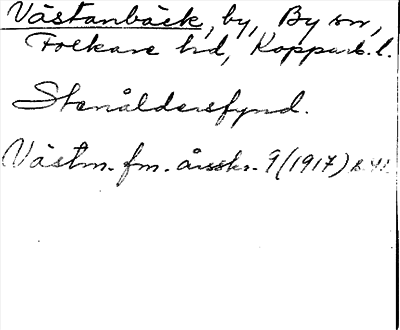 Västanbäck, by, By sn,
Folkare hd, Kopparb. l.
Stenåldersfynd.
Västm. fm. årsskr. 9 (1917)